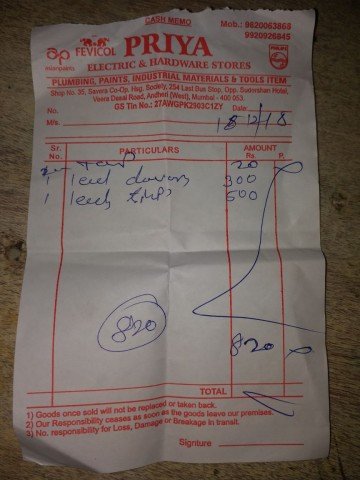 CASH MEMO
Mob.: 9820063868
9920926845
ap
asianpaints
FEVICOL
PRIYA
PHILIPS
ELECTRIC & HARDWARE STORES
PLUMBING, PAINTS, INDUSTRIAL MATERIALS & TOOLS ITEM
Shop No. 35, Savera Co-Op. Hsg. Society, 254 Last Bus Stop, Opp.
Veera Desai Road, Andheri (West), Mumbai - 400 953.
GS Tin No.: 27AWGPK2903C1ZY
No.
Date
M/s.
12/18
Sr. No. PARTICULARS AMOUNT Rs. P.
20
1 300
1 500
820
820
TOTAL
1) Goods once sold will not be replaced or taken back.
2) Our Responsibility ceases as soon as the goods leave our premises.
3) No. responsibility for Loss, Damage or Breakage in transit.
Signture